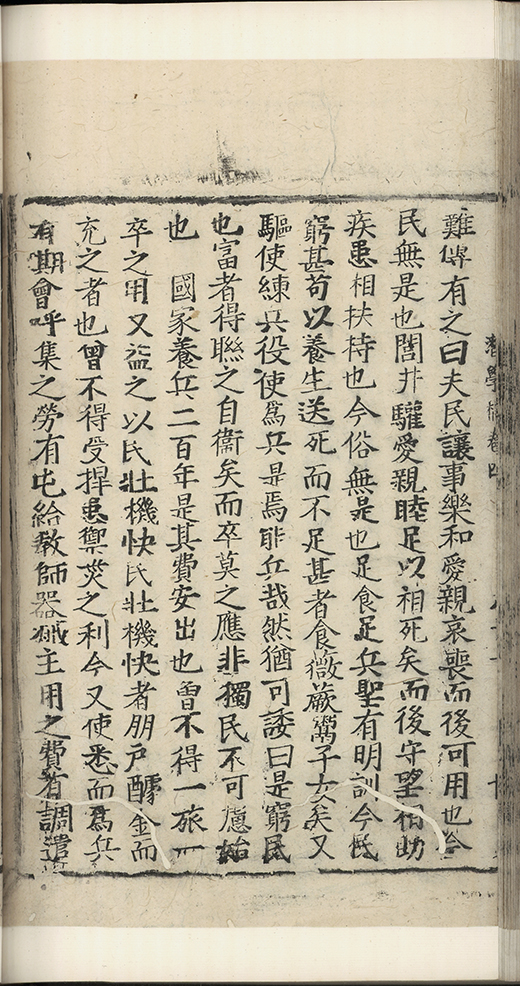 難俾有之曰夫民讓事樂和愛親哀喪而後可用也今
民無是也閭井驩愛親睦足以相死矣而後守望相助
疾患相扶持也今俗無是也足食足兵聖有明訓今民
窮甚苟以養生送死而不足甚者食薇蕨鬻子女矣又
驅使練兵役使為兵是焉能兵哉然猶可諉曰是窮民
也富者得聯之自衛矣而卒莫之應非獨民不可慮始
也 國家養兵二百年是其費安出也曾不得一旅一
卒之用又益之以民壯機快民壯機快者朋戶醵金而
充之者也曾不得受捍患禦災之利今又使悉而為兵
有期會呼集之勞有屯給教師器械主用之費有調遣
卷四